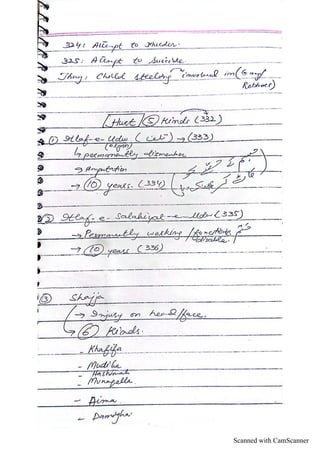 324: Attempt to Murder.
325: Attempt to Suicide
Thug: Child stealing involved in (Gang
Robber)
Hurt (5) Kinds (332)
① Itlaf-e-Udw → (333)
(organ)
↳ permanently dismember
→ Amputation
→ (10) years. (334)
② Itlaf-e-Salahiyat-e-Udw (335)
→ Permanently working / functions
disable
→ (10) years (336)
③ Shajja
→ Injury on head/face.
→ (6) Kinds.
- Khafifa
- Mudiha
- Hashimah
- Munaqqila
- Aima
- Damigha
Scanned with CamScanner